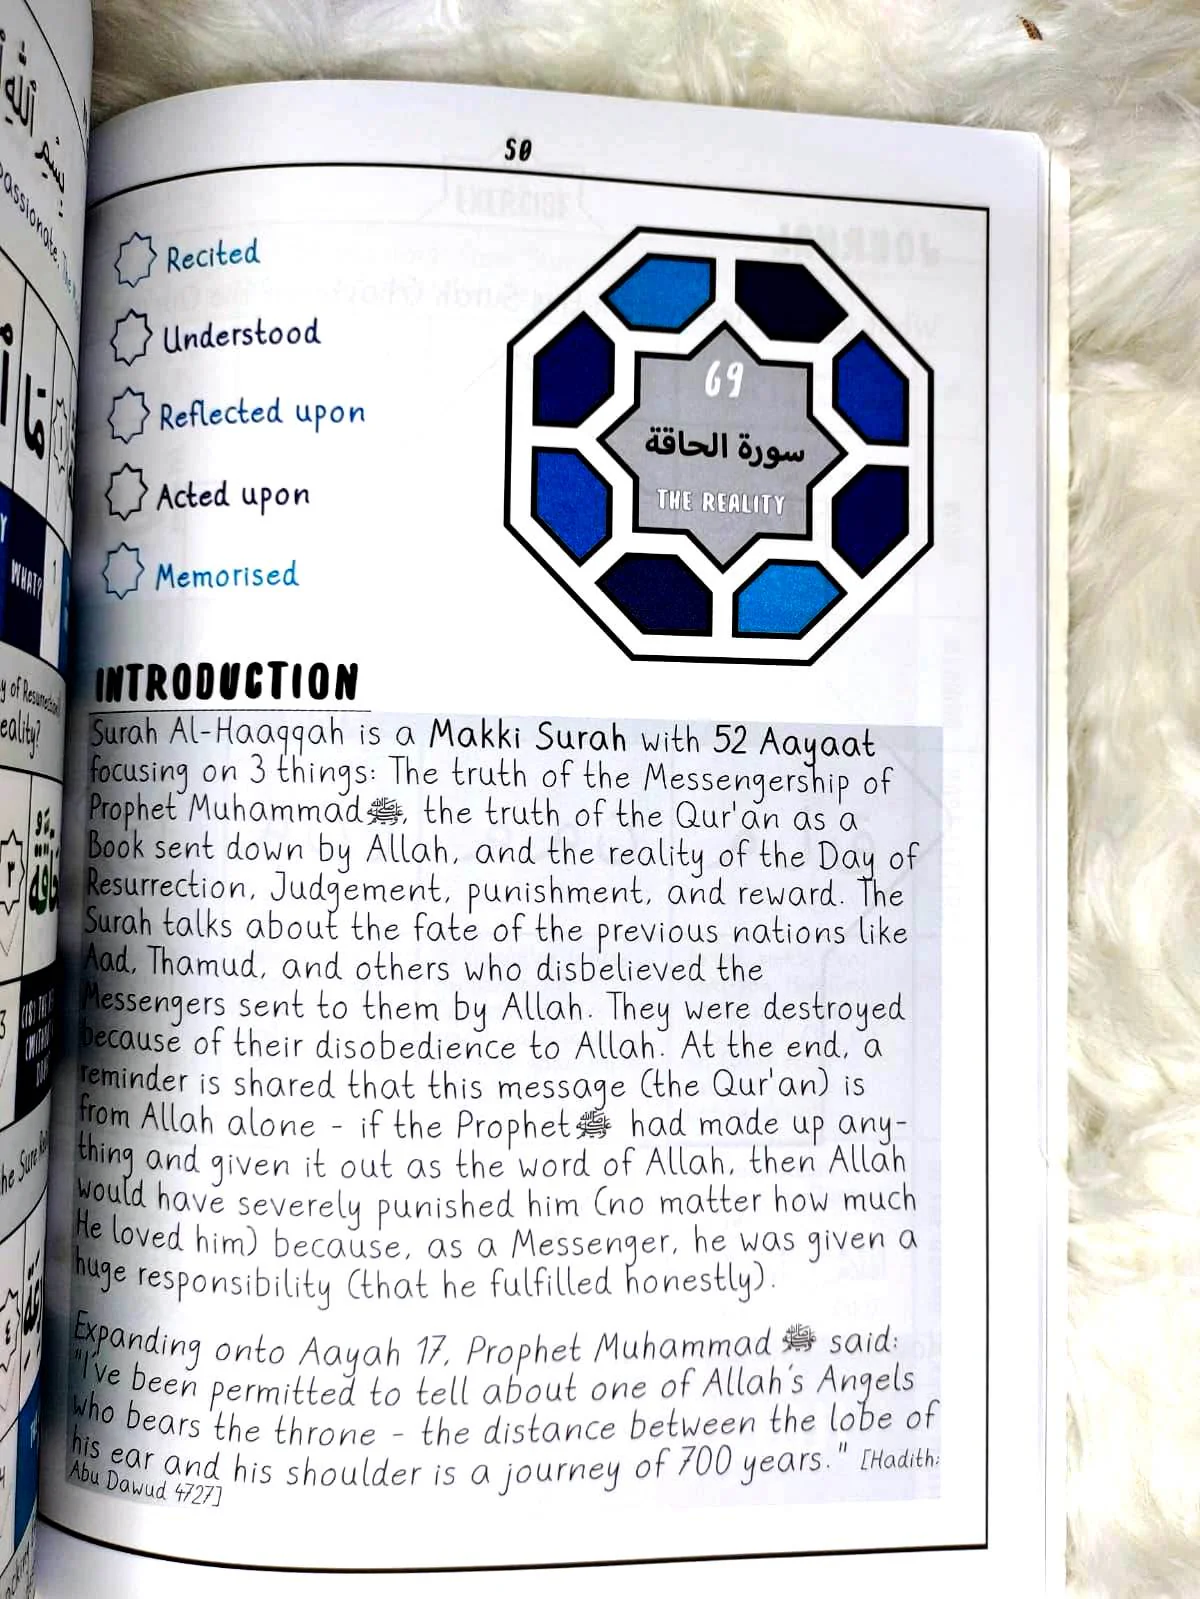 50
Recited
Understood
Reflected upon
Acted upon
Memorised
69
سورة الحاقة
THE REALITY
INTRODUCTION
Surah Al-Haaqqah is a Makki Surah with 52 Aayaat
focusing on 3 things: The truth of the Messengership of
Prophet Muhammadﷺ, the truth of the Qur'an as a
Book sent down by Allah, and the reality of the Day of
Resurrection, Judgement, punishment, and reward. The
Surah talks about the fate of the previous nations like
Aad, Thamud, and others who disbelieved the
Messengers sent to them by Allah. They were destroyed
because of their disobedience to Allah. At the end, a
reminder is shared that this message (the Qur'an) is
from Allah alone - if the Prophetﷺ had made up any-
thing and given it out as the word of Allah, then Allah
would have severely punished him (no matter how much
He loved him) because, as a Messenger, he was given a
huge responsibility (that he fulfilled honestly).
Expanding onto Aayah 17, Prophet Muhammad ﷺ said:
"I've been permitted to tell about one of Allah's Angels
who bears the throne - the distance between the lobe of
his ear and his shoulder is a journey of 700 years." [Hadith:
Abu Dawud 4727]
بِسْمِ ٱللَّهِ
WHAT?